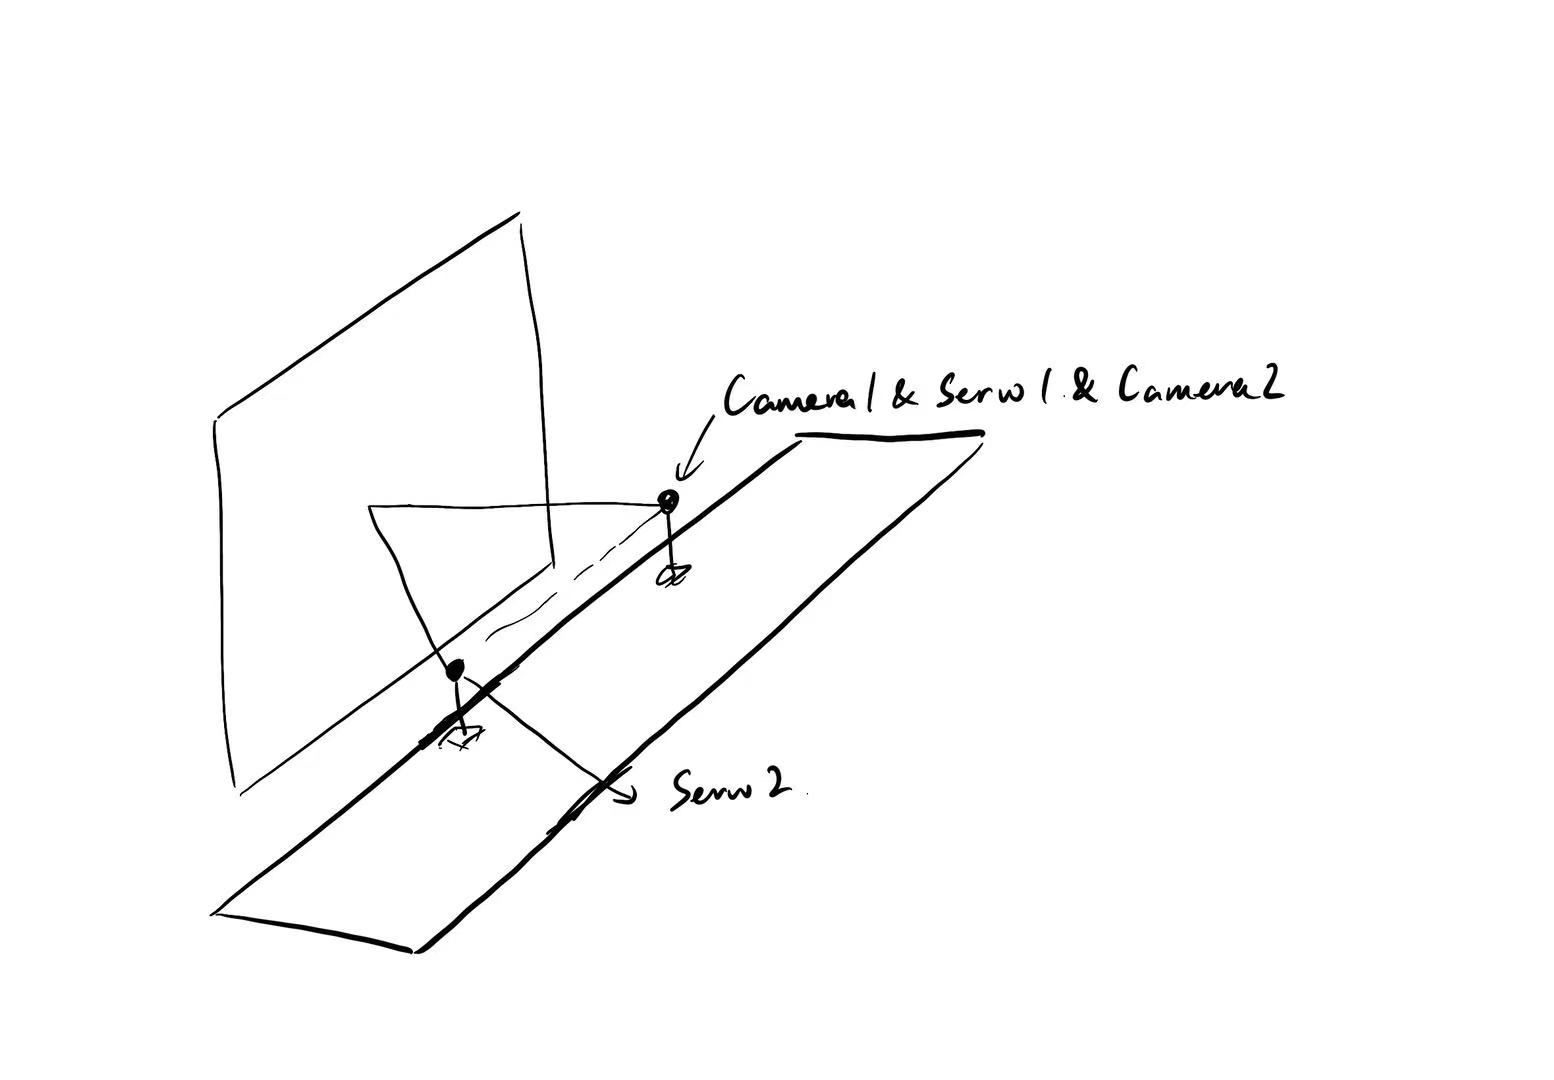 Camera1 & Servo1 & Camera2
Servo2